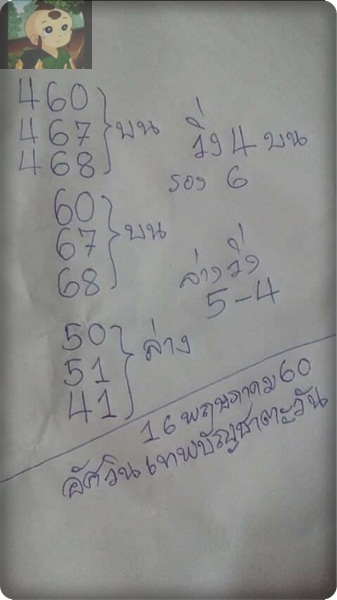 460
467 บน วิ่ง 4 บน
468 รอง 6
60
67 บน
68 ล่างวิ่ง
5-4
50
51 ล่าง
41
16 พฤษภาคม 60
อัศวิน เทพบัญชาตะวัน